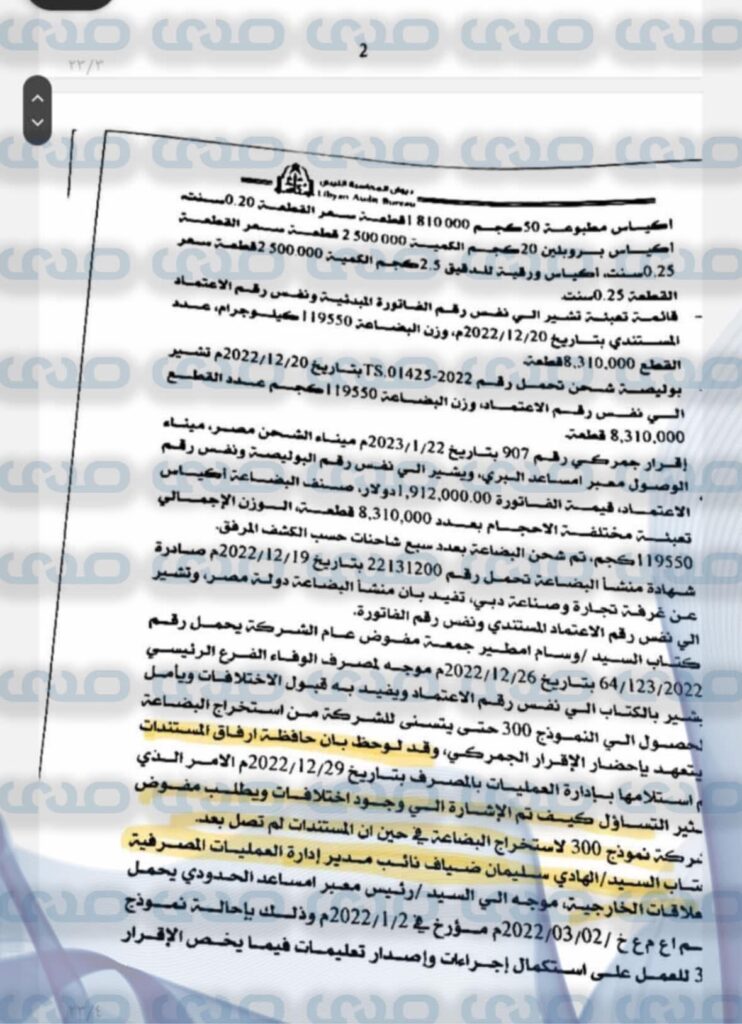 2
٢٣/٣
ديوان المحاسبة الليبي
Libyan Audit Bureau
أكياس مطبوعة 50كجم 810000 1قطعة سعر القطعة 0.20سنت،
أكياس بروبلين 20كجم الكمية 500000 2 قطعة سعر القطعة
0.25سنت، أكياس ورقية للدقيق 2.5كجم الكمية 500000 2قطعة سعر
القطعة 0.25سنت.
- قائمة تعبئة تشير الي نفس رقم الفاتورة المبدئية ونفس رقم الاعتماد
المستندي بتاريخ 2022/12/20م، وزن البضاعة 119550كيلوجرام، عدد
القطع 8,310,000قطعة
- بوليصة شحن تحمل رقم TS.01425-2022 بتاريخ 2022/12/20م تشير
الي نفس رقم الاعتماد، وزن البضاعة 119550كجم عدد القطع
8,310,000 قطعة.
إقرار جمركي رقم 907 بتاريخ 2023/1/22م ميناء الشحن مصر، ميناء
الوصول معبر امساعد البري، ويشير الي نفس رقم البوليصة ونفس رقم
الاعتماد، قيمة الفاتورة 1,912,000.00دولار، صنف البضاعة أكياس
تعبئة مختلفة الاحجام بعدد 8,310,000 قطعة، الوزن الإجمالي
119550كجم، تم شحن البضاعة بعدد سبع شاحنات حسب الكشف المرفق.
شهادة منشأ البضاعة تحمل رقم 22131200 بتاريخ 2022/12/19م صادرة
عن غرفة تجارة وصناعة دبي، تفيد بان منشأ البضاعة دولة مصر، وتشير
الي نفس رقم الاعتماد المستندي ونفس رقم الفاتورة.
كتاب السيد /وسام امطير جمعة مفوض عام الشركة يحمل رقم
64/123/2022 بتاريخ 2022/12/26م موجه لمصرف الوفاء الفرع الرئيسي
يشير بالكتاب الي نفس رقم الاعتماد ويفيد به قبول الاختلافات ويأمل
لحصول الي النموذج 300 حتى يتسنى للشركة من استخراج البضاعة
يتعهد بإحضار الإقرار الجمركي، وقد لوحظ بان حافظة ارفاق المستندات
م استلامها بإدارة العمليات بالمصرف بتاريخ 2022/12/29م الامر الذي
ثير التساؤل كيف تم الإشارة الي وجود اختلافات ويطلب مفوض
شركة نموذج 300 لاستخراج البضاعة في حين ان المستندات لم تصل بعد.
تاب السيد/الهادي سليمان ضياف نائب مدير إدارة العمليات المصرفية
علاقات الخارجية، موجه الي السيد /رئيس معبر امساعد الحدودي يحمل
م اع م ع خ /2022/03/02م مؤرخ في 2022/1/2م وذلك بإحالة نموذج
3 للعمل على استكمال إجراءات وإصدار تعليمات فيما يخص الإقرار
٢٣/٤
صدى